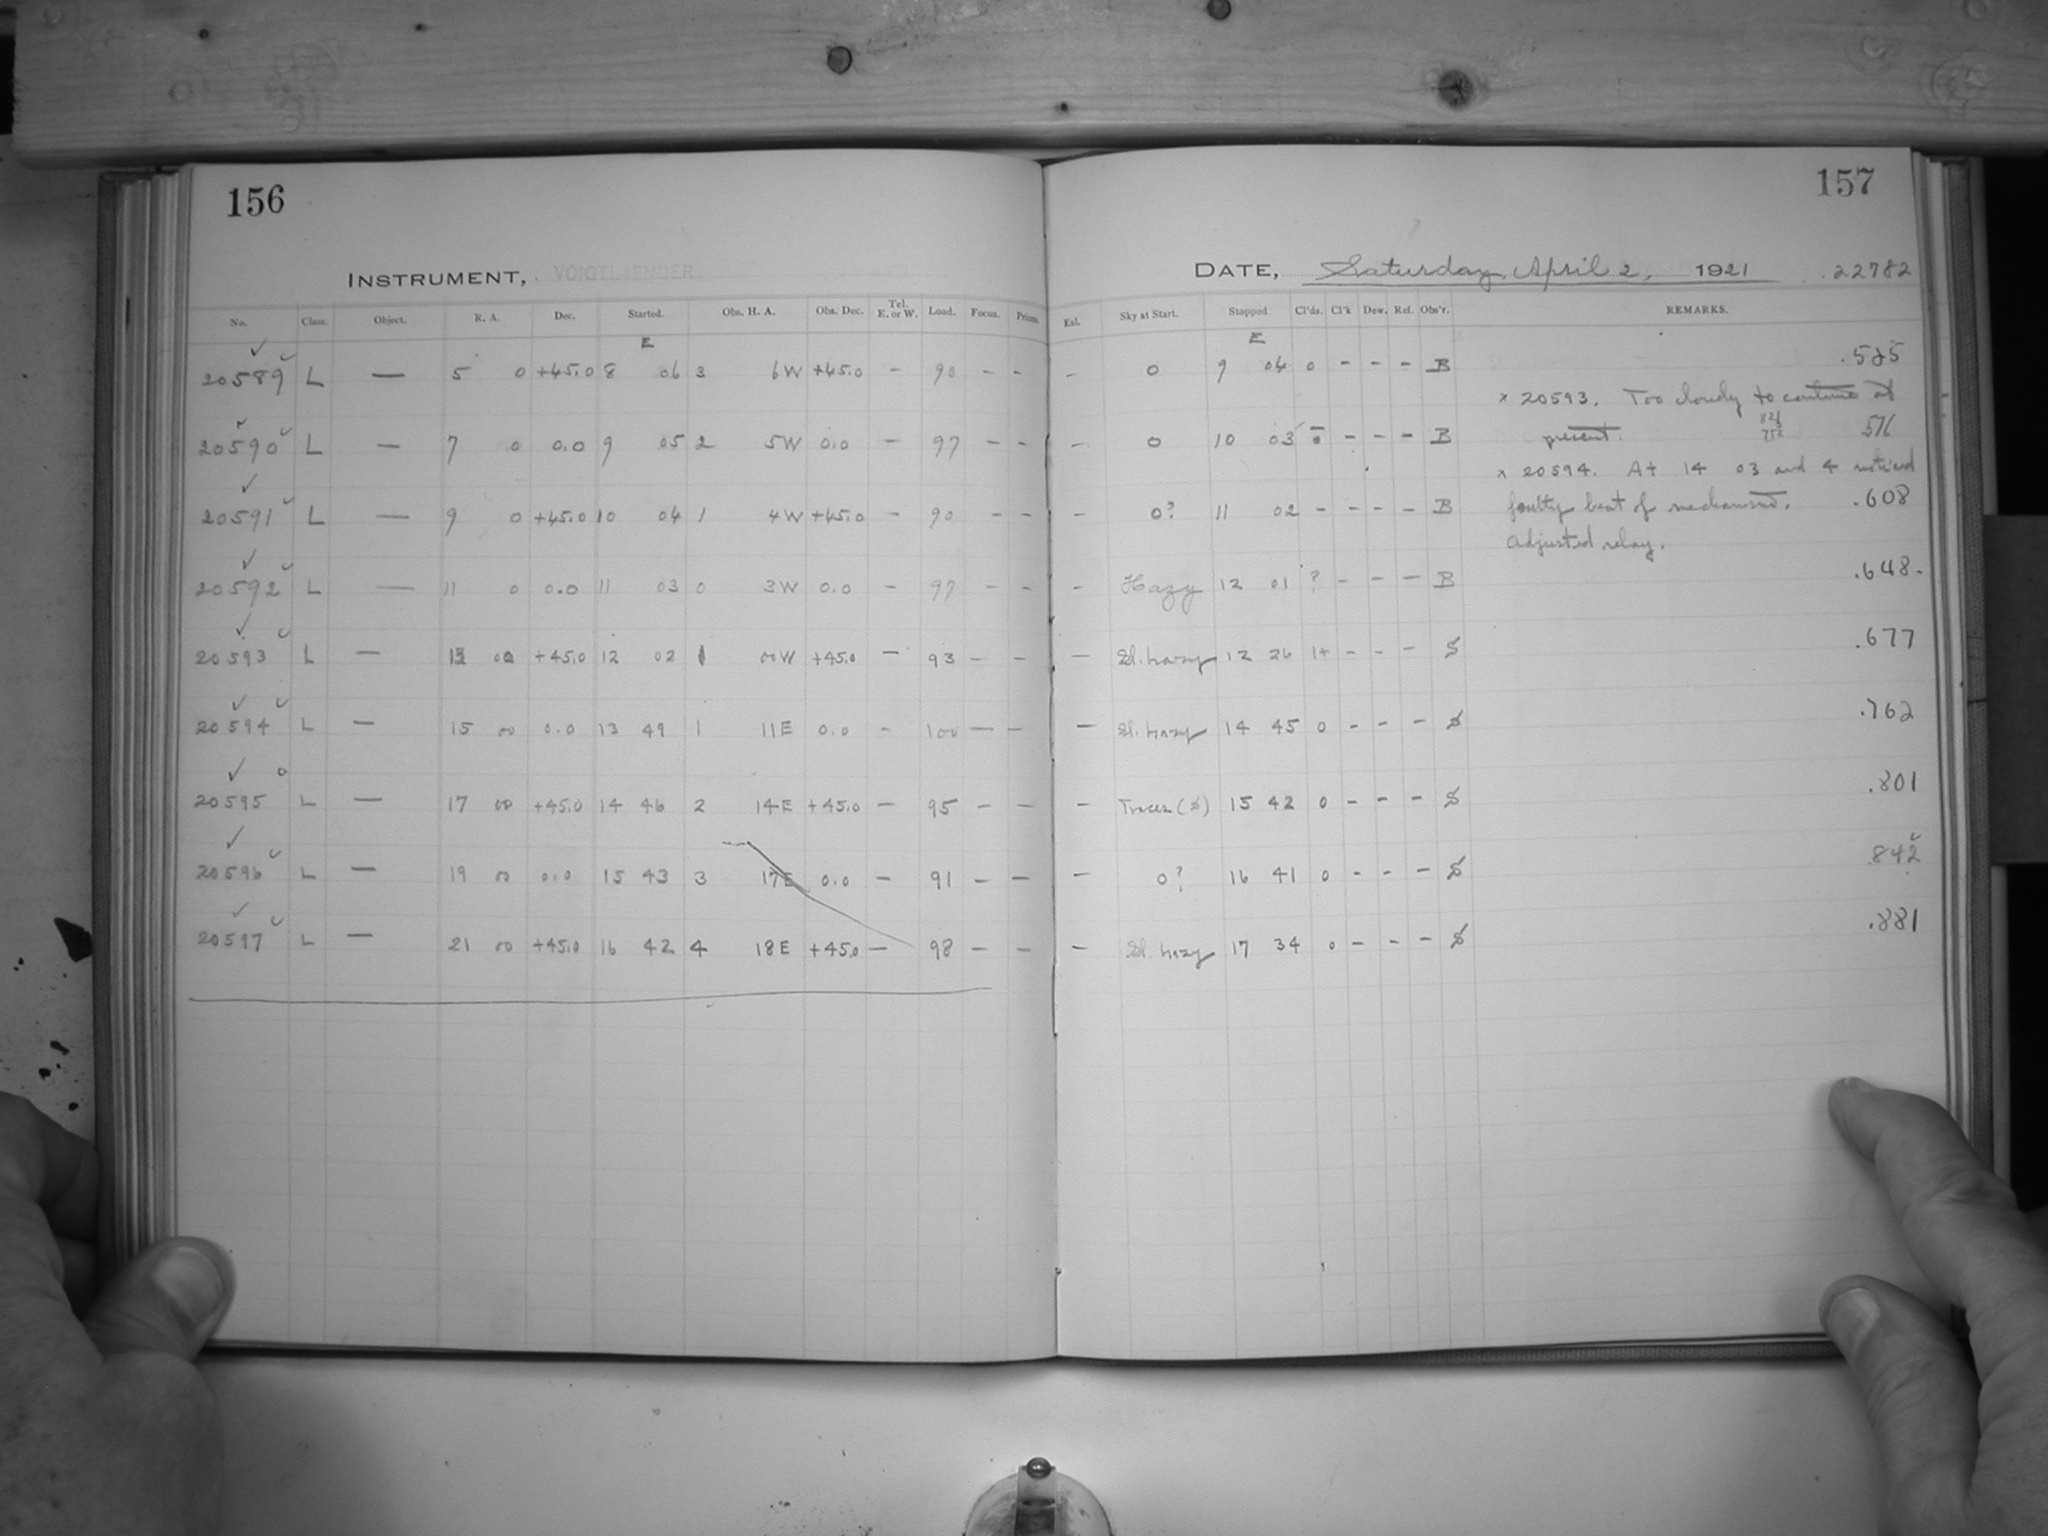 156
INSTRUMENT, VOIGTLAENDER
No. Class. Object. R. A. Dec. Started. Obs. H. A. Obs. Dec. Tel. E. or W. Load. Focus. Prisms.
E
20589 L — 5 0 +45.0 8 06 3 6W +45.0 - 90 - -
20590 L — 7 0 0.0 9 05 2 5W 0.0 - 97 - -
20591 L — 9 0 +45.0 10 04 1 4W +45.0 - 90 - -
20592 L — 11 0 0.0 11 03 0 3W 0.0 - 97 - -
20593 L — 13 00 +45.0 12 02 1 00W +45.0 - 93 - -
20594 L — 15 00 0.0 13 49 1 11E 0.0 - 100 - -
20595 L — 17 00 +45.0 14 46 2 14E +45.0 - 95 - -
20596 L — 19 00 0.0 15 43 3 17E 0.0 - 91 - -
20597 L — 21 00 +45.0 16 42 4 18E +45.0 - 98 - -
157
DATE, Saturday, April 2, 1921 .22782
Exl. Sky at Start. Stopped Cl'ds. Cl'k Dew. Ref. Obs'r. REMARKS.
E
- 0 9 04 0 - - - B .525
× 20593. Too cloudy to continue at
- 0 10 03 0 - - - B present. 576
× 20594. At 14 03 and 4 noticed
- 0? 11 02 - - - - B faulty beat of mechanism. .608
Adjusted relay.
- Hazy 12 01 ? - - - B .648.
- Sl. hazy 12 26 1+ - - - S .677
- Sl. hazy 14 45 0 - - - S .762
- Traces (S) 15 42 0 - - - S .801
- 0? 16 41 0 - - - S .842
- Sl. hazy 17 34 0 - - - S .881